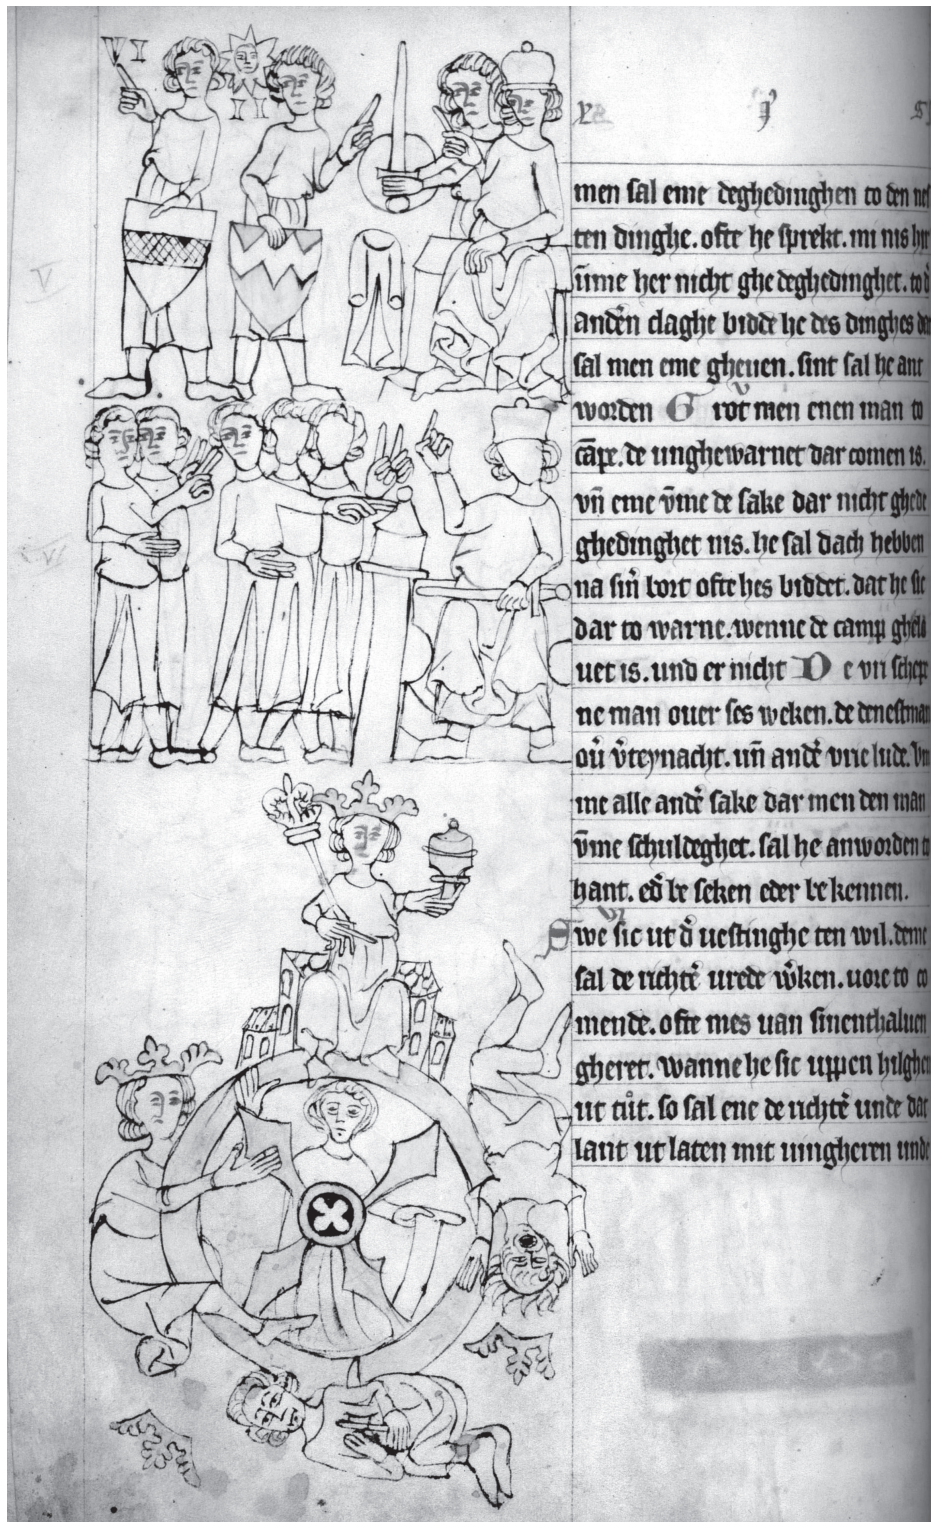 VI
II
men sal eme deghedinghen to den nes
ten dinghe. ofte he sprekt. mi nis hir
ūme her nicht ghe deghedinghet. to
andēn claghe bidde he des dinghes
sal men eme gheuen. sint sal he ant
worden G rot men enen man to
cāpe. de unghewarnet dar comen is.
vn̄ eme v̄me de sake dar nicht ghede
ghedinghet nis. he sal dach hebben
na sin̄ bort ofte hes biddet. dat he sic
dar to warne. wenne de camp ghelo
uet is. und er nicht D e vri schepe
ne man ouer ses weken. de denestman
ou̅ v̄teynacht. un̄ andē vrie lude. Vm
me alle andē sake dar men den man
v̄me schuldeghet. sal he anworden to
hant. ed̄ be seken eder be kennen.
VI
Swe sic ut d̄ uestinghe ten wil. deme
sal de richtē urede w̄ken. uore to co
mende. ofte mes uan sinenthaluen
gheret. wanne he sic uppen hilghen
ut tut. so sal ene de richtē unde dat
lant ut laten mit uingheren unde